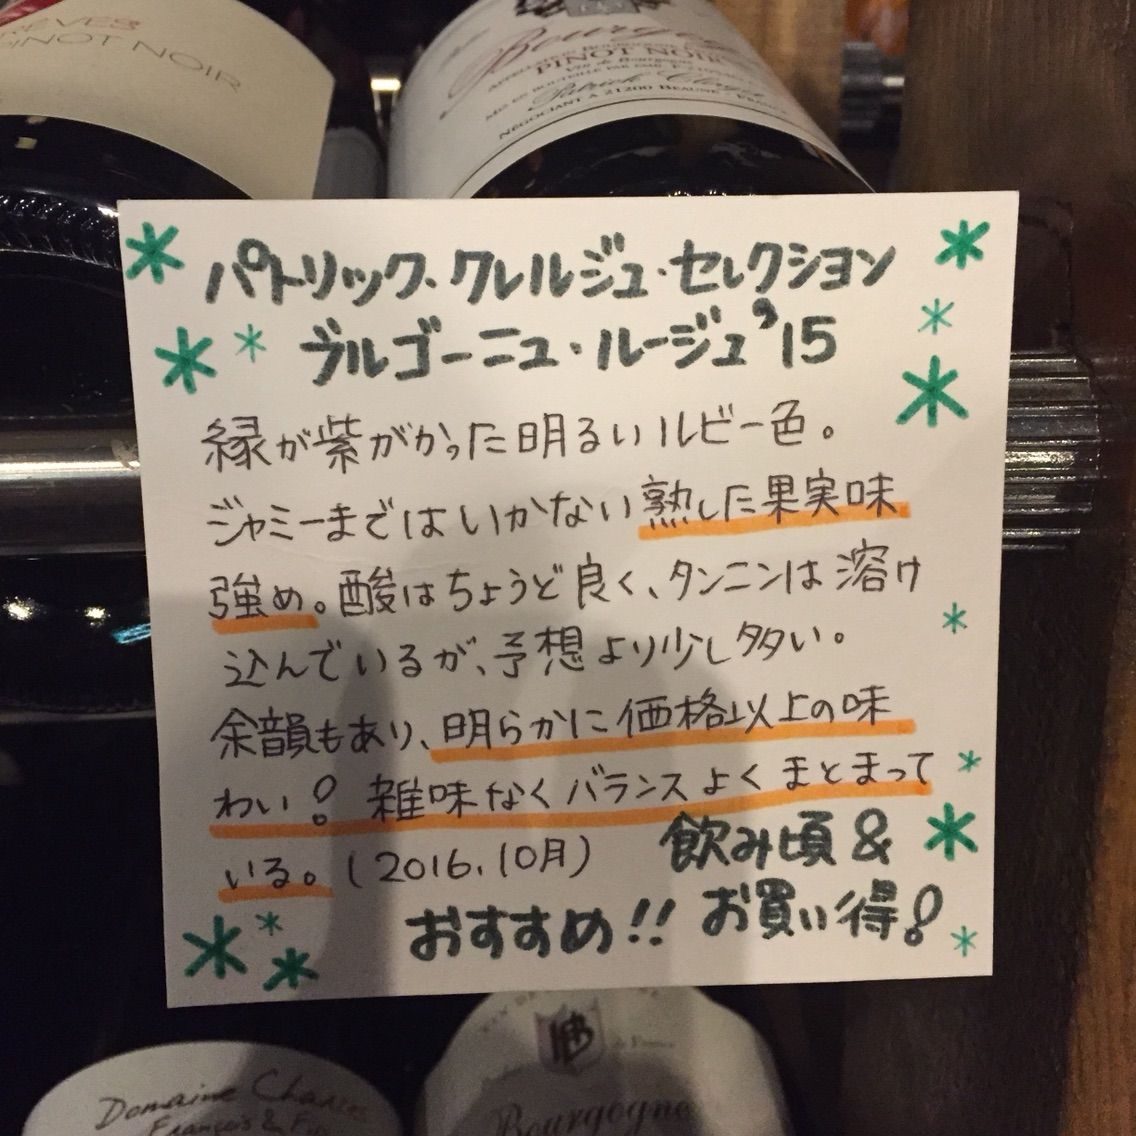 PINOT NOIR
Bourgogne
PINOT NOIR
NÉGOCIANT À 21200 BEAUNE - FRANCE
パトリック・クレルジュ・セレクション
ブルゴーニュ・ルージュ'15
縁が紫がかった明るいルビー色。
ジャミーまではいかない熟した果実味
強め。酸はちょうど良く、タンニンは溶け
込んでいるが、予想より少し多い。
余韻もあり、明らかに価格以上の味
わい!雑味なくバランスよくまとまって
いる。(2016.10月)
飲み頃&
お買い得!
おすすめ!!
Domaine
François &
Bourgogne